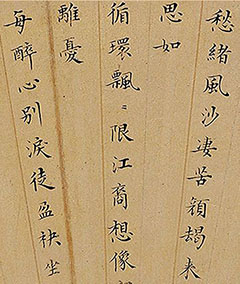 愁緒風沙凄苦潁曷来
思如
循環飄〻限江裔想像
離憂
每醉心別淚徒盈袂坐